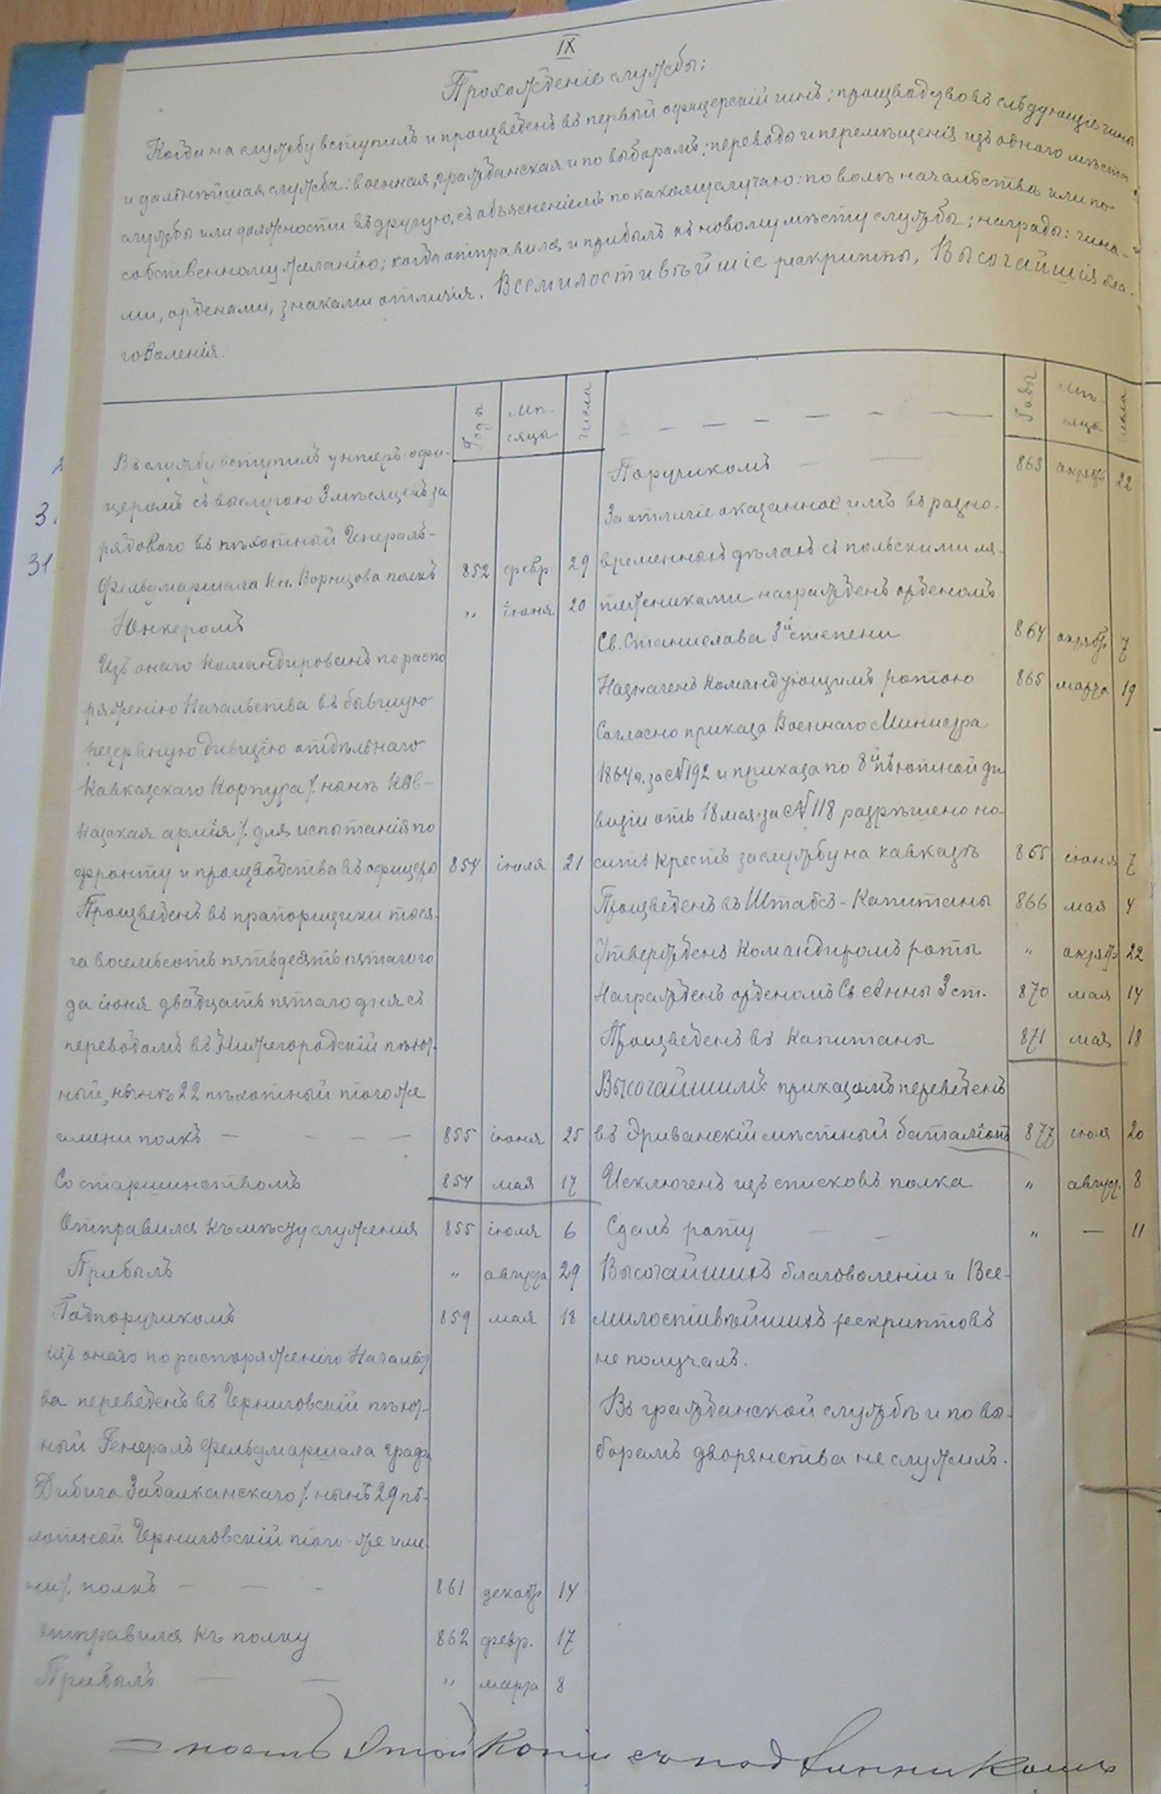 IX
Прохожденіе службы:
Когда на службу вступилъ и произведенъ въ первый офицерскій чинъ; производство въ слѣдующіе чины
и дальнѣйшая служба: военная, гражданская и по выборамъ; переводы и перемѣщенія изъ одного мѣста
службы или должности въ другую, съ объясненіемъ по какому случаю: по волѣ начальства или по
собственному желанію; когда отправился и прибылъ къ новому мѣсту службы; награды: чина-
ми, орденами, знаками отличія, Всемилостивѣйшіе рескрипты, Высочайшія бла-
говоленія.
Годы Мѣ-сяцы Числа
Въ службу вступилъ унтеръ офи-
церомъ съ выслугою 3 мѣсяцевъ за
рядоваго въ пѣхотной Генералъ-
Фельдмаршала Кн. Воронцова полкъ 852 февр. 29
Юнкеромъ „ іюня 20
Изъ онаго командированъ по распо
ряженію Начальства въ бывшую
резервную дивизію отдѣльнаго
Кавказскаго Корпуса /. нынѣ Кав-
казская армія /. для испытанія по
фронту и производства въ офицеры 854 іюля 21
Произведенъ въ прапорщики тыся-
ча восемьсотъ пятьдесятъ пятаго го
да іюня двадцать пятаго дня съ
переводомъ въ Нижегородскій пѣхот-
ный, нынѣ 22 пѣхотный того же
имени полкъ — — — — 855 іюня 25
Со старшинствомъ 854 мая 17
Отправился къ мѣсту служенія 855 іюля 6
Прибылъ „ августа 29
Подпоручикомъ 859 мая 18
изъ онаго по распоряженію Начальст
ва переведенъ въ Черниговскій пѣхот-
ный Генералъ Фельдмаршала графа
Дибича Забалканскаго /. нынѣ 29 пѣ-
хотной Черниговскій того же име
ни /. полкъ — — — 861 декабр 14
Отправился къ полку 862 февр. 17
Прибылъ — — „ марта 8
Годы Мѣ-сяцы числа
Поручикомъ — — 863 октября 22
За отличіе оказанное имъ въ разно-
временныхъ дѣлахъ съ польскими мя-
тежниками награжденъ орденомъ
Св. Станислава 3й степени 864 октябр 7
Назначенъ командующимъ ротою 865 марта 19
Согласно приказа Военнаго Министра
1864 г. за № 192 и приказа по 8й пѣхотной ди
визіи отъ 18 мая за № 118 разрѣшено но-
сить крестъ за службу на Кавказѣ 865 іюня 7
Произведенъ въ Штабсъ-Капитаны 866 мая 4
Утвержденъ Командиромъ роты „ октяб. 22
Награжденъ орденомъ Св. Анны 3 ст. 870 мая 14
Произведенъ въ Капитаны 871 мая 18
Высочайшимъ приказомъ переведенъ
въ Эриванскій мѣстный баталіонъ 877 іюля 20
Исключенъ изъ списковъ полка „ август. 8
Сдалъ роту — — „ — 11
Высочайшихъ благоволеніи и Все-
милостивѣйшихъ рескриптовъ
не получалъ.
Въ гражданской службѣ и по вы-
борамъ дворянства не служилъ.
ность этой копіи съ подлинникомъ